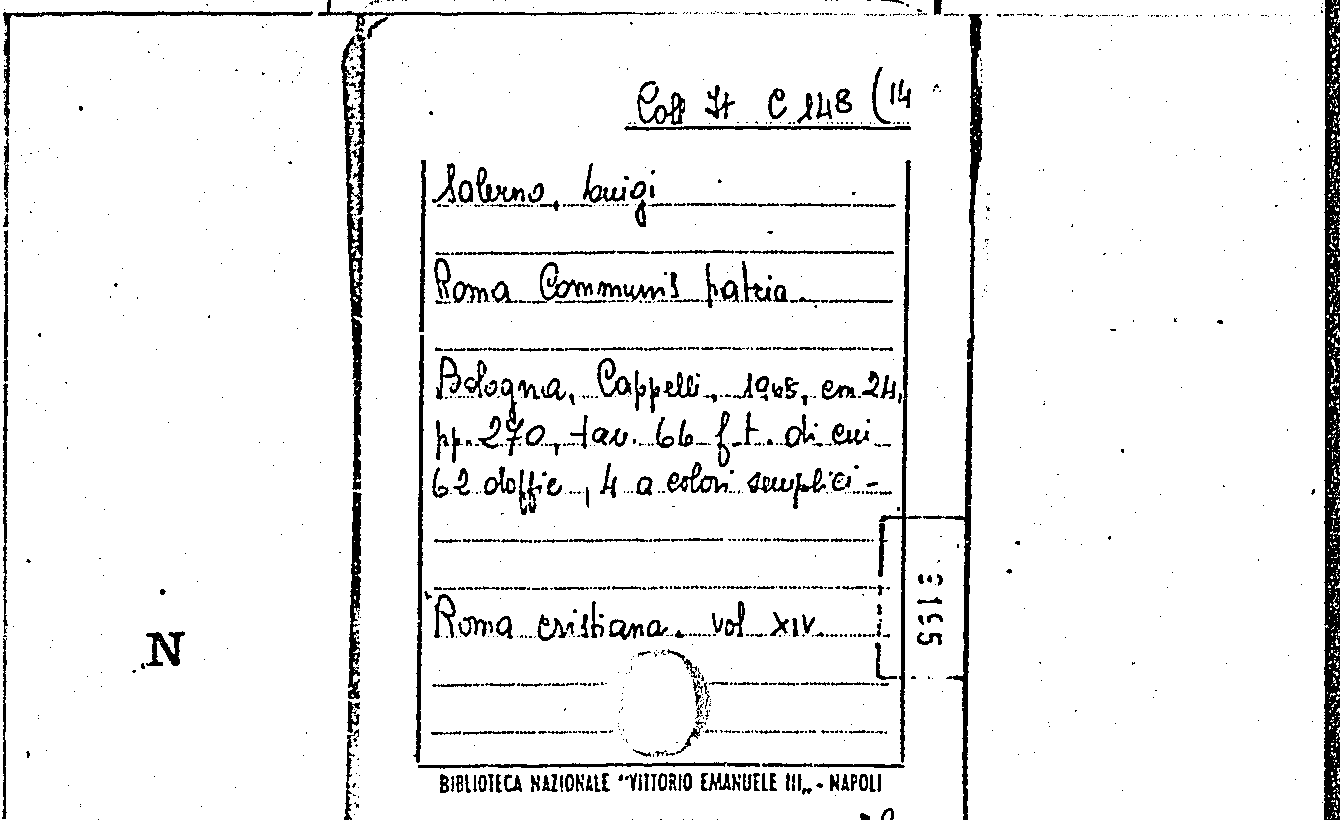 Coll It C 148 (14
Salerno, Luigi
Roma Communis patria.
Bologna, Cappelli, 1968, cm 24,
pp. 270, tav. 66 f. t. di cui
62 doppie, 4 a colori semplici -
Roma cristiana. vol XIV.
N
BIBLIOTECA NAZIONALE "VITTORIO EMANUELE III„ - NAPOLI